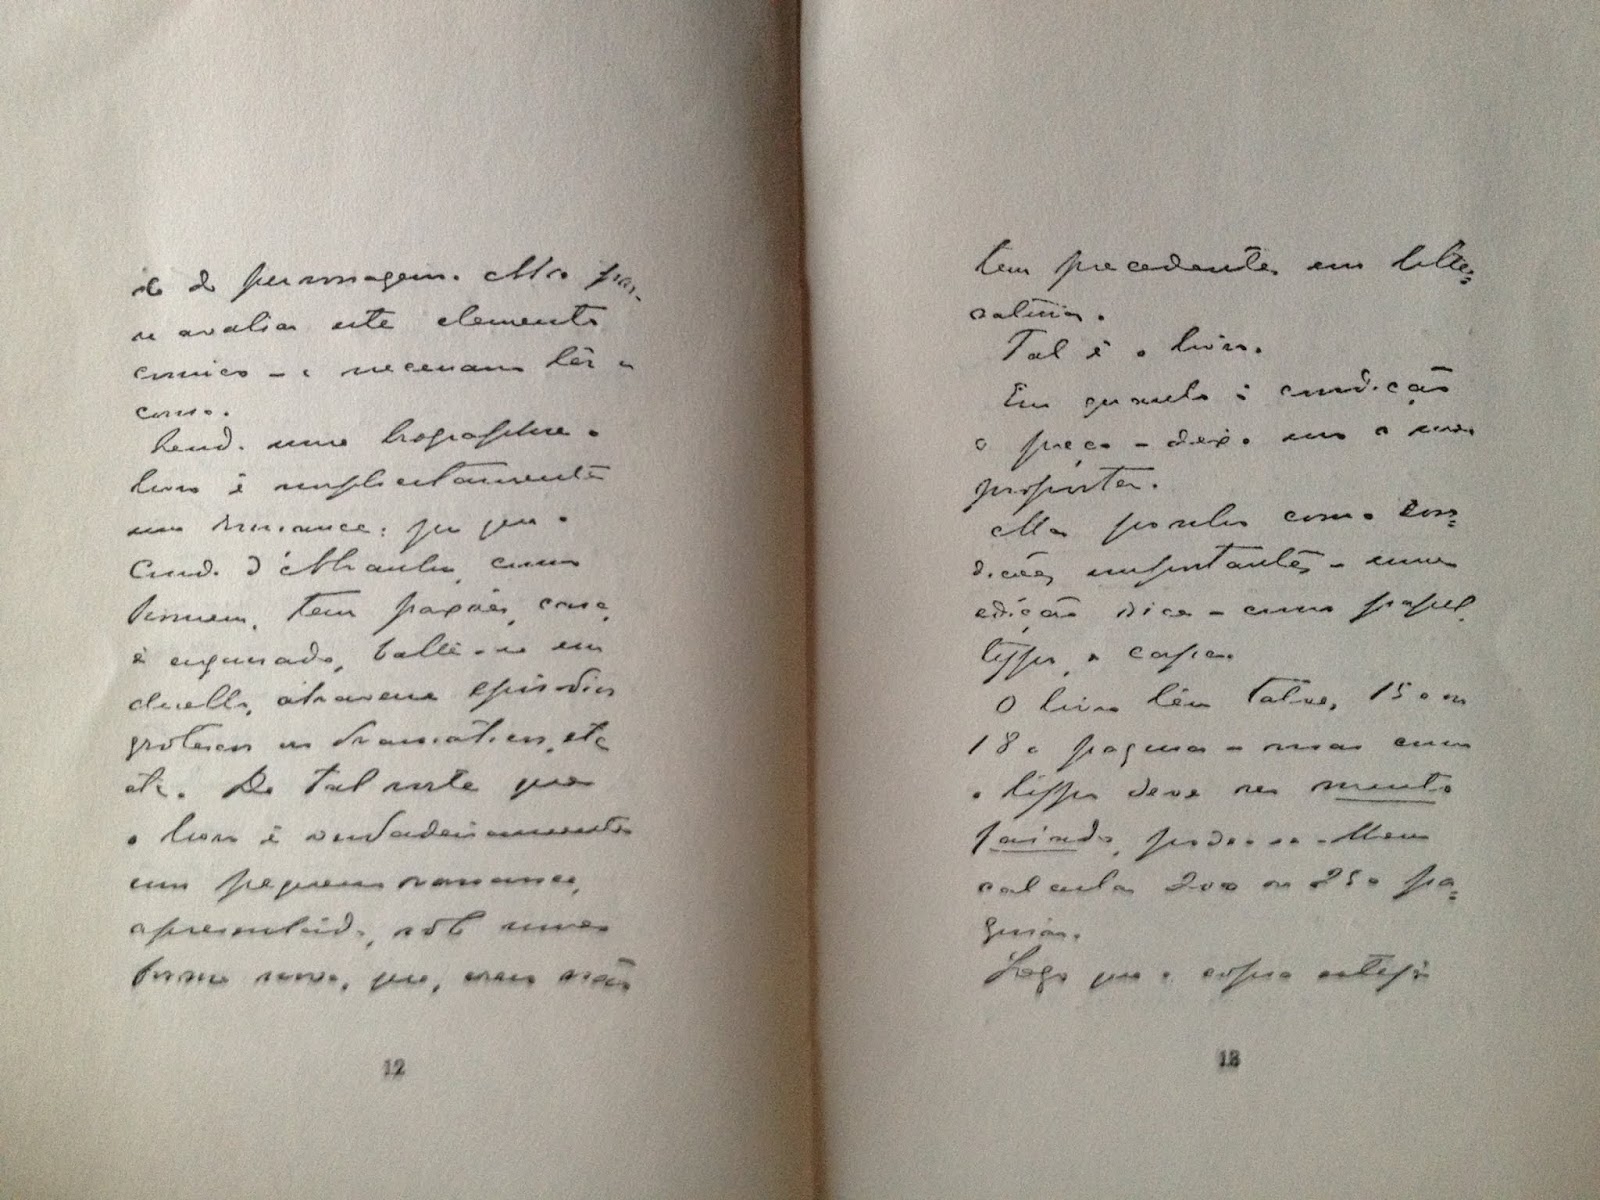 de do personagem. Mas pa-
ra avaliar este elemento
comico – é necessario lêr o
conto.
Sendo uma biographia o
livro é implicitamente
um romance: por que o
Conde d'Abranhos, como
homem, tem paixões, casa,
é enganado, bate-se em
duello, atravessa episodios
grotescos ou dramaticos, etc
etc. De tal sorte que
o livro é verdadeiramente
um pequeno romance,
apresentado, sob uma
forma nova, que, creio não
12
tem precedentes em litte-
ratura.
Tal é o livro.
Em quanto á condição
o preço – deixo-as a sua
proposta.
Mas ponho como con-
dições importantes – uma
edição rica – como papel,
typo, e capa.
O livro têm talvez, 150 ou
180 paginas – mas como
o typo deve ser muito
pairado, poder-se-lhem
calcular 200 ou 250 pa-
ginas.
Logo que a copia esteja
13